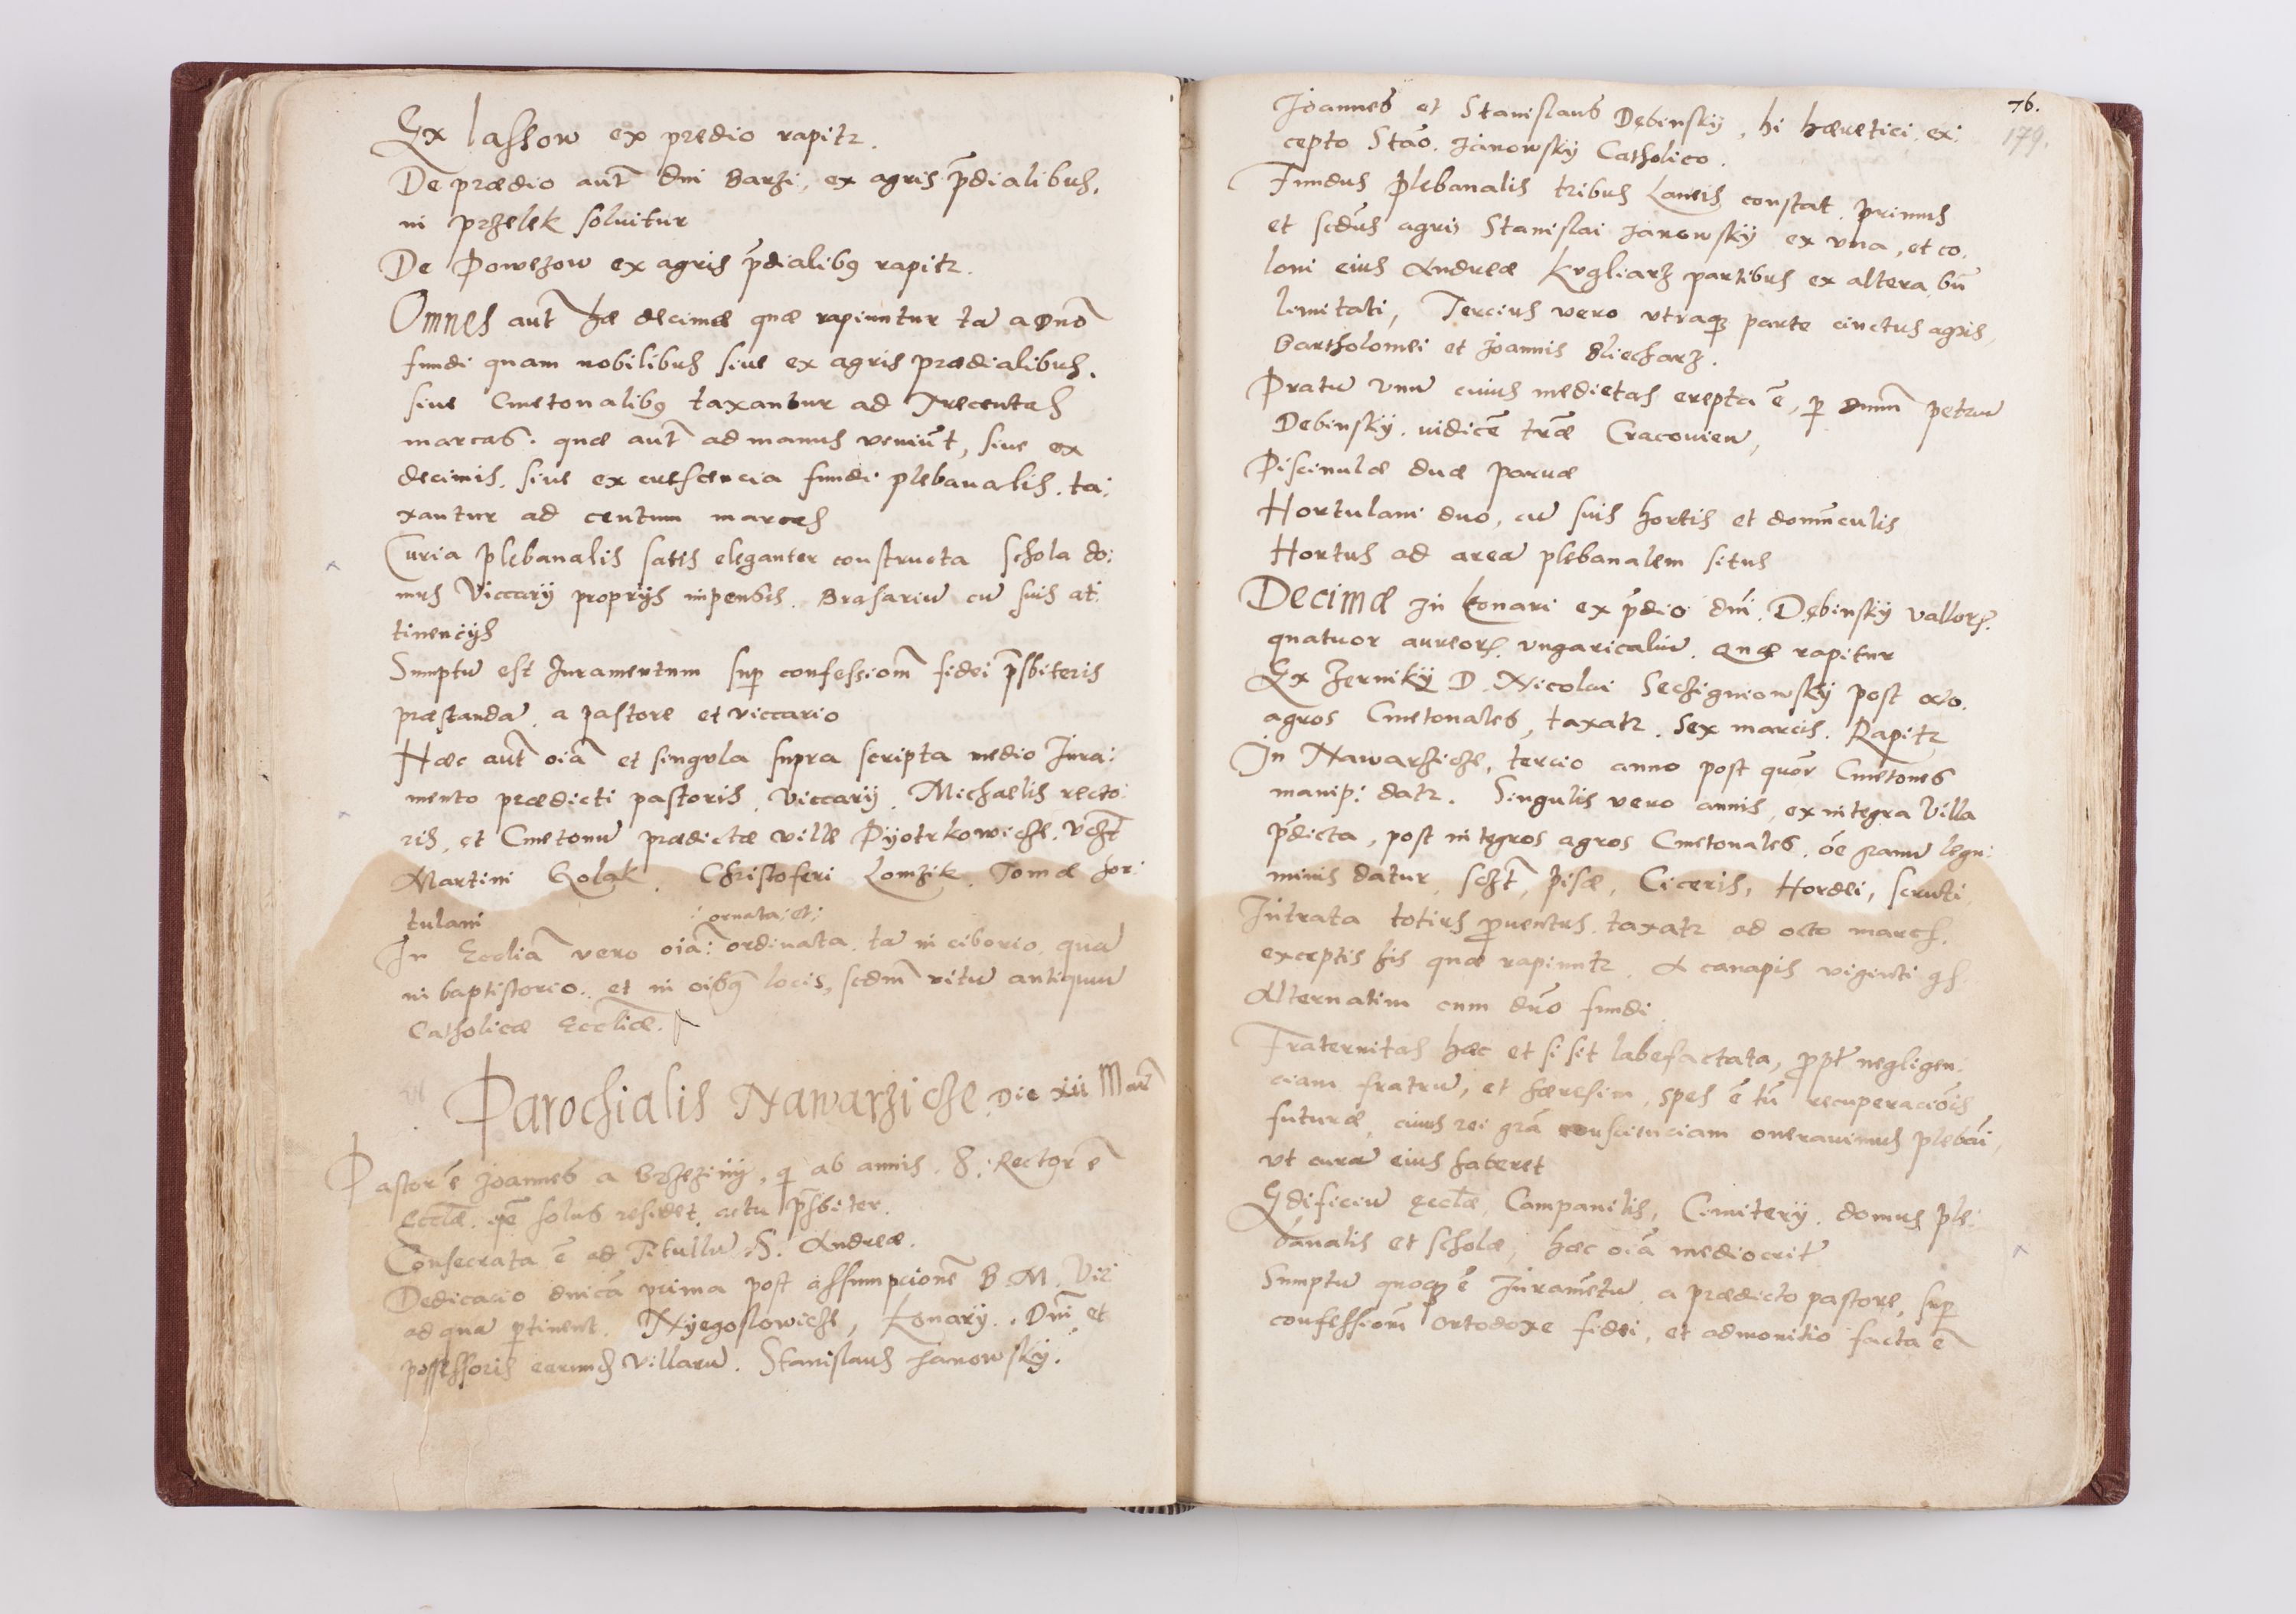 Ex lassow ex predio rapitr.
De prædio aut̄ dni Barzi, ex agris p̄dialibus.
in przelek soluitur
De Powezow ex agris p̄dialibꝯ rapitr.
Omnes aut̄ hæ decimæ quæ rapiuntur ta᷈ a dno᷈
fundi quam nobilibus siue ex agris prædialibus.
siue Cmetonalibꝯ taxantur ad Trecentas
marcas. quæ aut̄ ad manus veniūt, siue ex
decimis. siue ex cressencia fundi plebanalis. ta:
xantur ad centum marcas
Curia plebanalis satis eleganter constructa schola do:
mus Viccarij proprijs inpensis. Brasariu᷈ cu᷈ suis at:
tinencijs
Sumptu᷈ est Juramentum sup confessiom᷈ fidei p̄sbiteris
præstanda᷈. a pastore et viccario
Hæc aut̄ oia᷈ et singula supra scripta medio Jura:
mento prædicti pastoris, Viccarij. Michaelis recto:
ris, et Cmetonu᷈ prædictæ villæ Pyotrkowicze. vcz̄t
Martini Golak. Christoferi Lomzik. Tomæ hor:
tulani
: ornata: et:
In Eccliā vero oiā: ordinata. ta᷈ in ciborio. qua᷈
in baptistorio. et in oibꝯ locis, scdm᷈ ritu᷈ antiquu᷈
Catholicæ Eccliæ.
Parochialis Nawarzicze. Die xii Mar᷈
Pastor ē Joannes a Brzeziny, q ab annis. 8. Rector ē
Eccliæ. solus residet, actu p̄sbiter.
Consecrata ē ad Titullu᷈ S. Andreæ.
Dedicacio dnicā prima post assumpcionē B. M. Vir:
ad qua᷈ ptinent. Nyegoslowicze, Konary. Dni᷈ et
possessoris villaru᷈. Stanislaus Janowsky.
76.
179.
Joannes et Stanislaus Dębinsky, hi hæretici, ex:
cepto Stāo. Janowsky Catholico.
Fundus plebanalis tribus Laneis constat. primus
et scdus agris Stanislai Janowsky ex vna, et co:
loni eius Andreæ Kvgliarz partibus ex altera
limitati, Tercius vero vtraqꝫ parte cinctus agris
Bartholomei et Joannis Bliecharz.
Pratu᷈ vnu᷈ cuius medietas erepta ē, p dnum᷈ petru᷈
Debinsky. iudicē tr̄æ Cracouien,
Piscinulæ duæ paruæ
Hortulani duo, cu᷈ suis hortis et domunculis
Hortus ad area᷈ plebanalem situs
Decimæ in Konari ex p̄dio dni᷈. Dębinsky vallor.
quatuor aureor. vngaricaliu᷈. quæ rapitur
Ex Zerniky D. Nicolai Seczigniowsky post octo.
agros Cmetonales, taxatr. Sex marcis. Rapitr
In Nawarzicze, tercio anno post quor᷈ Cmetones
manip: datr. Singulis vero annis, ex integra Villa
p̄dicta, post integros agros Cmetonales. oē granu᷈ legu:
minis datur, scz̄t, pisæ, Ciceris, Hordei,
Intrata totius puentus. taxatr ad octo marcas.
exceptis his quæ rapiuntr. & canapis viginti gs.
Alternatim cum dn̄o fundi
Fraternitas hæc et si sit labefactata, ppt̄ negligen:
ciam fratru᷈, et hæresim, spes ē tn᷈ recuperaciōis
futuræ, cuius rei grā conscienciam onerauimus plebāi,
vt cura᷈ eius haberet
Edificiu᷈ Eccliæ, Campanilis, Cimitery. domus ple:
banalis et scholæ, hæc oiā mediocrit᷈
Sumptu᷈ quoqꝫ ē Jurametu᷈ a prædicto pastore, sup
confessiom᷈ ortodoxe fidei, et admonitio facta ē